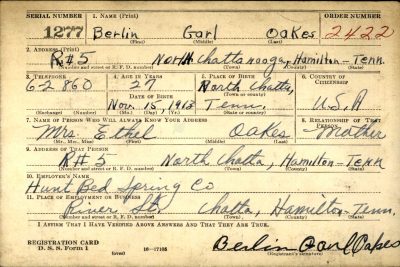 SERIAL NUMBER 1. NAME (Print) ORDER NUMBER
1277 Berlin Garl Oakes 2422
(First) (Middle) (Last)
2. ADDRESS (Print)
R#5 North Chattanooga, Hamilton-Tenn.
(Number and street or R. F. D. number) (Town) (County) (State)
3. TELEPHONE 4. AGE IN YEARS 5. PLACE OF BIRTH 6. COUNTRY OF CITIZENSHIP
6-2860 27 North Chatta,
DATE OF BIRTH (Town or county)
Nov. 15, 1913 Tenn. U.S.A
(Exchange) (Number) (Mo.) (Day) (Yr.) (State or country)
7. NAME OF PERSON WHO WILL ALWAYS KNOW YOUR ADDRESS 8. RELATIONSHIP OF THAT PERSON
Mrs. Ethel Oakes Mother
(Mr., Mrs., Miss) (First) (Middle) (Last)
9. ADDRESS OF THAT PERSON
R#5 North Chatta, Hamilton-Tenn
(Number and street or R. F. D. number) (Town) (County) (State)
10. EMPLOYER'S NAME
Hunt Bed Spring Co
11. PLACE OF EMPLOYMENT OR BUSINESS
River St. Chatta, Hamilton-Tenn.
(Number and street or R. F. D. number) (Town) (County) (State)
I AFFIRM THAT I HAVE VERIFIED ABOVE ANSWERS AND THAT THEY ARE TRUE.
REGISTRATION CARD
D. S. S. Form 1 (over) 16-17105 Berlin Earl Oakes
(Registrant's signature)